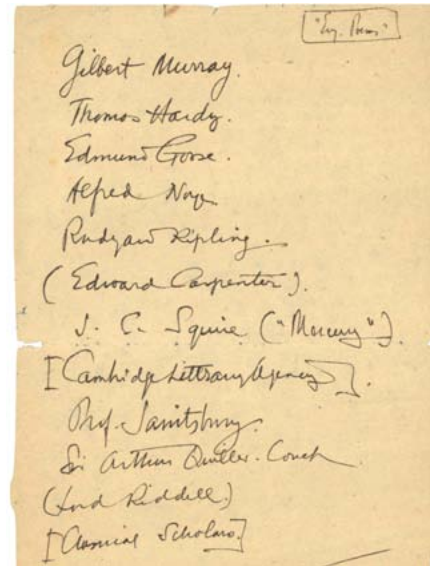 "Eng. Poems"
Gilbert Murray.
Thomas Hardy.
Edmund Gosse.
Alfred Noyes
Rudyard Kipling.
(Edward Carpenter).
J. C. Squire ("Mercury").
[Cambridge Literary Agency].
Prof. Saintsbury.
Sir Arthur Quiller-Couch
(Lord Riddell.)
[Classical Scholars.]